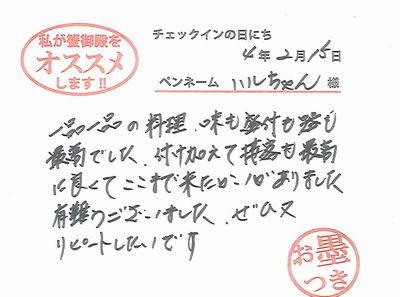 私が蟹御殿を
オススメ
します!!
チェックインの日にち
4年2月15日
ペンネーム ハルちゃん 様
一品一品の料理、味も盛付も器も
最高でした、付け加えて接客も最高
に良くてここまで来たカイがありました
有難うございました、ぜひ又
リピートしたいです
お墨
つき